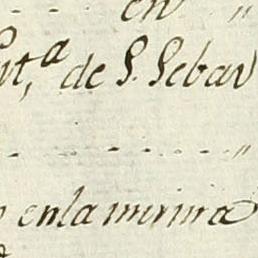 en "
rt,ª de S. Sebas
"
enla misma